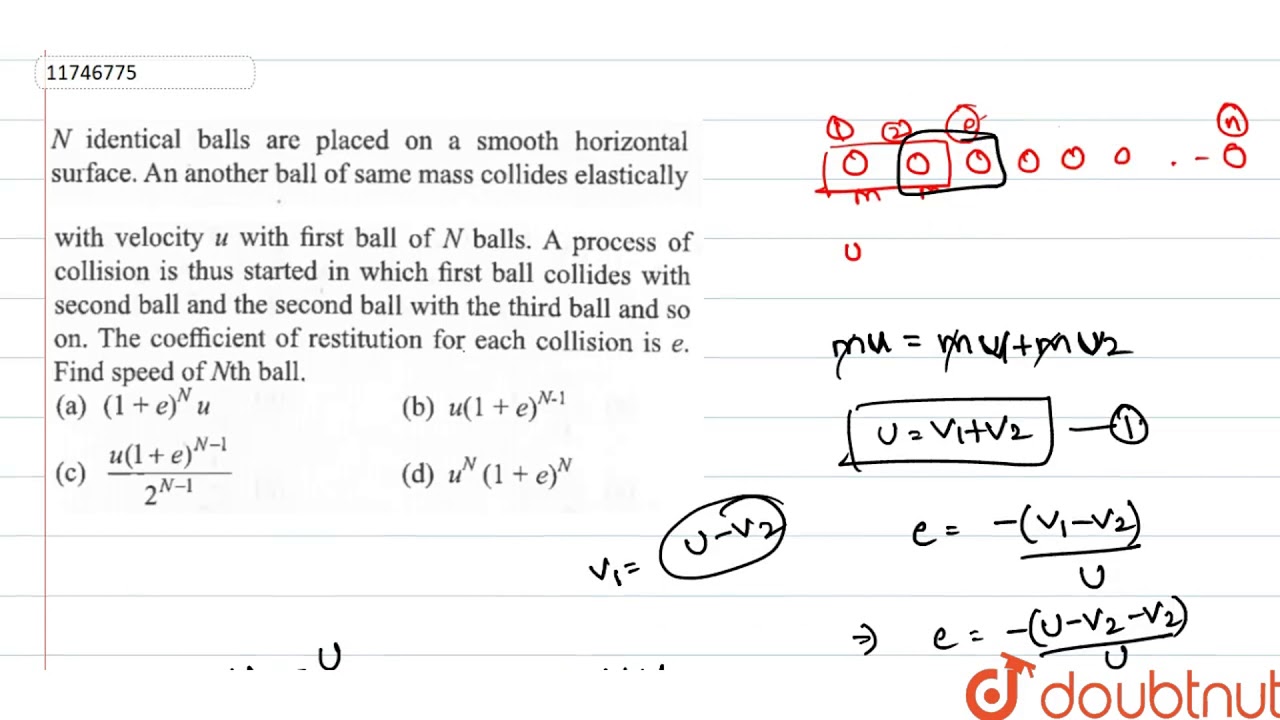 11746775
N identical balls are placed on a smooth horizontal
surface. An another ball of same mass collides elastically
with velocity u with first ball of N balls. A process of
collision is thus started in which first ball collides with
second ball and the second ball with the third ball and so
on. The coefficient of restitution for each collision is e.
Find speed of Nth ball.
(a) (1 + e)^N u
(b) u(1 + e)^{N-1}
(c) \frac{u(1 + e)^{N-1}}{2^{N-1}}
(d) u^N (1 + e)^N
① ② e n
m m
U
mu = mv1 + mv2
U = V1+V2 — ①
e = -(V1-V2)/U
V1 = U-V2
⇒ e = -(U-V2-V2)/U
U
doubtnut